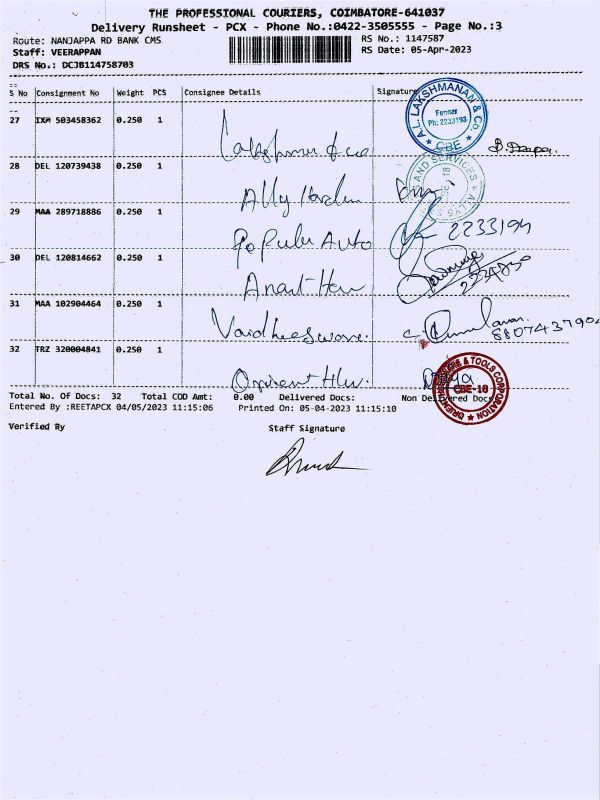 THE PROFESSIONAL COURIERS, COIMBATORE-641037
Delivery Runsheet - PCX - Phone No.:0422-3505555 - Page No.:3
Route: NANJAPPA RD BANK CMS
RS No.: 1147587
Staff: VEERAPPAN
RS Date: 05-Apr-2023
DRS No.: DCJB114758703
S No Consignment No Weight PCS Consignee Details Signature
27 IXM 503458362 0.250 1
A.L. LAKSHMANAN & Co.
Fenner
Ph: 2233193
CBE
28 DEL 120739438 0.250 1 Ally
AND SERVICES
29 MAA 289718886 0.250 1 Popular Auto 2233194
30 DEL 120814662 0.250 1 Anant
31 MAA 102904464 0.250 1 Vaidheeswara
32 TRZ 320004841 0.250 1 Orient Divya
& TOOLS CORPORATION
CBE-18
Total No. Of Docs: 32 Total COD Amt: 0.00 Delivered Docs: Non Delivered Docs
Entered By :REETAPCX 04/05/2023 11:15:06 Printed On: 05-04-2023 11:15:10
Verified By Staff Signature